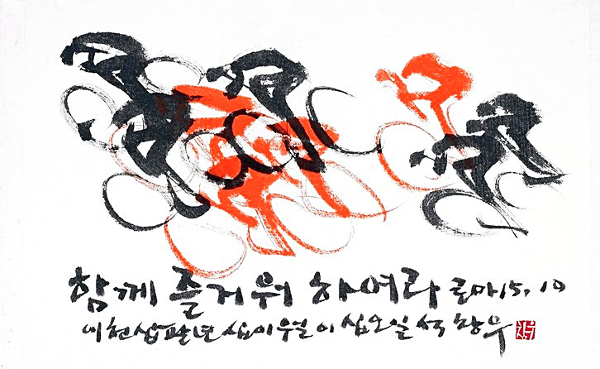 함께 즐거워 하여라 로마15.10
이천십팔년 십이월 이십오일 석창우